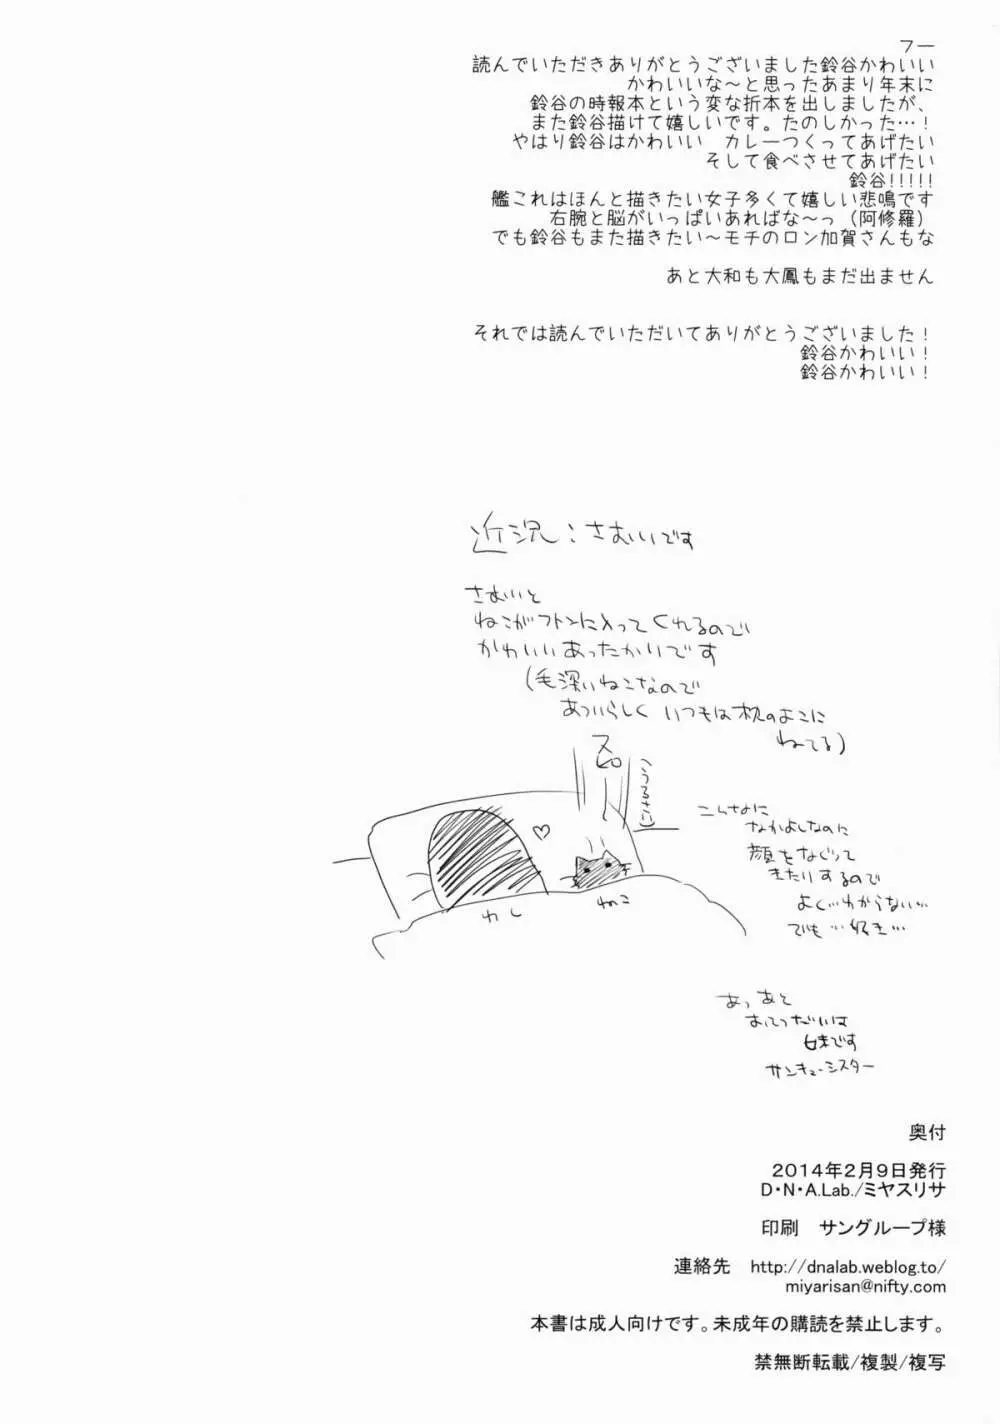 フー
読んでいただきありがとうございました鈴谷かわいい
かわいいな〜と思ったあまり年末に
鈴谷の時報本という変な折本を出しましたが、
また鈴谷描けて嬉しいです。たのしかった…！
やはり鈴谷はかわいい　カレーつくってあげたい
そして食べさせてあげたい
鈴谷!!!!!
艦これはほんと描きたい女子多くて嬉しい悲鳴です
右腕と脳がいっぱいあればな〜っ（阿修羅）
でも鈴谷もまた描きたい〜モチのロン加賀さんもな
あと大和も大鳳もまだ出ません
それでは読んでいただいてありがとうございました！
鈴谷かわいい！
鈴谷かわいい！
近況：さむいです
さむいと
ねこがフトンに入ってくれるので
かわいいあったかいです
(毛深いねこなので
あついらしく いつもは枕のよこに
ねてる)
(うるさい)
♡
わし
ねこ
こんなに
なかよしなのに
顔をなぐって
きたりするので
よく…わからない…
でも…好き…
あっあと
おてつだいは
妹です
サンキューシスター
奥付
2014年2月9日発行
D・N・A.Lab./ミヤスリサ
印刷　サングループ様
連絡先　http://dnalab.weblog.to/
miyarisan@nifty.com
本書は成人向けです。未成年の購読を禁止します。
禁無断転載/複製/複写